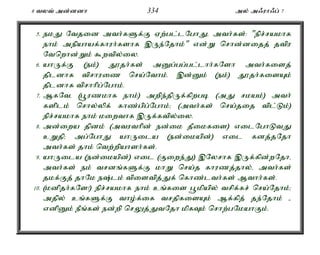 8 வலவ் அன்னனா 334 அல் அஃராஃப் 7
5. நமது வேதனை அவர்களுக்கு ஏற்பட்டபோது, அவர்கள்: "நிச்சயமாக நாம் அநியாயக்காரர்களாக இருந்தோம்" என்று சொன்னதைத் தவிர வேறொன்றும் கூறவில்லை.
6. யாருக்கு (நம்) தூதர்கள் அனுப்பப்பட்டார்களோ அவர்களைத் திடனாக விசாரணை செய்வோம். இன்னும் (நம்) தூதர்களையும் திடனாக விசாரிப்போம்.
7. ஆகவே (பூரணமாக நாம்) அறிந்திருக்கிறபடி (அது சமயம்) அவர் களிடம் சொல்லிக் காண்பிப்போம்; (அவர்கள் செய்ததை விட்டும்) நிச்சயமாக நாம் மறைவாக இருக்கவில்லை.
8. அன்றைய தினம் (அவரவரின் நன்மை தீமைகளை) எடைபோடுவது உறுதி; அப்போது யாருடைய (நன்மையின்) எடை கனத்ததோ அவர்கள் தாம் வெற்றியாளர்கள்.
9. யாருடைய (நன்மையின்) எடை (குறைந்து) இலேசாக இருக்கின்றதோ, அவர்கள் நம் வசனங்களுக்கு மாறு செய்த காரணத்தால், அவர்கள் தமக்குத் தாமே நஷ்டம் விளைவித்துக் கொண்டவர்கள் ஆவார்கள்.
10. (மனிதர்களே!) நிச்சயமாக நாம் உங்களை பூமியில் வசிக்கச் செய்தோம்; அதில் உங்களுக்கு வாழ்க்கை வசதிகளையும் ஆக்கித் தந்தோம் , எனினும் நீங்கள் நன்றி செலுத்துவதோ மிகவும் சொற்பமேயாகும்.